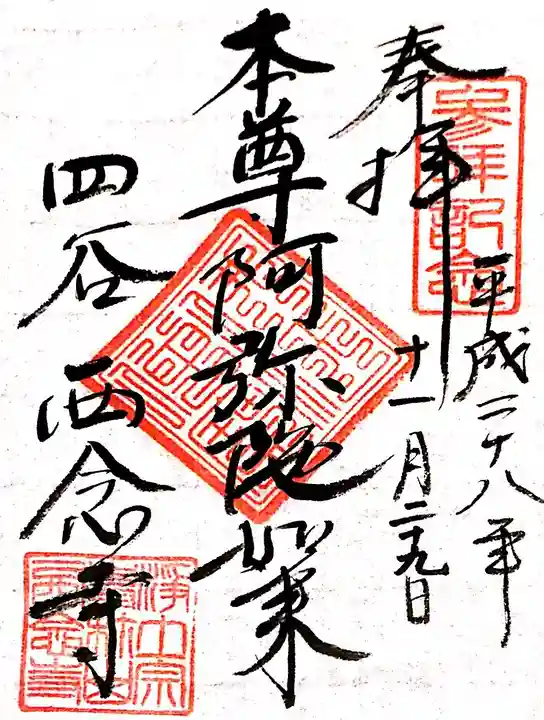 奉拝
参拝記念
平成二十八年
十一月二十九日
本尊阿弥陀如来
四谷 西念寺
浄土宗
西念寺